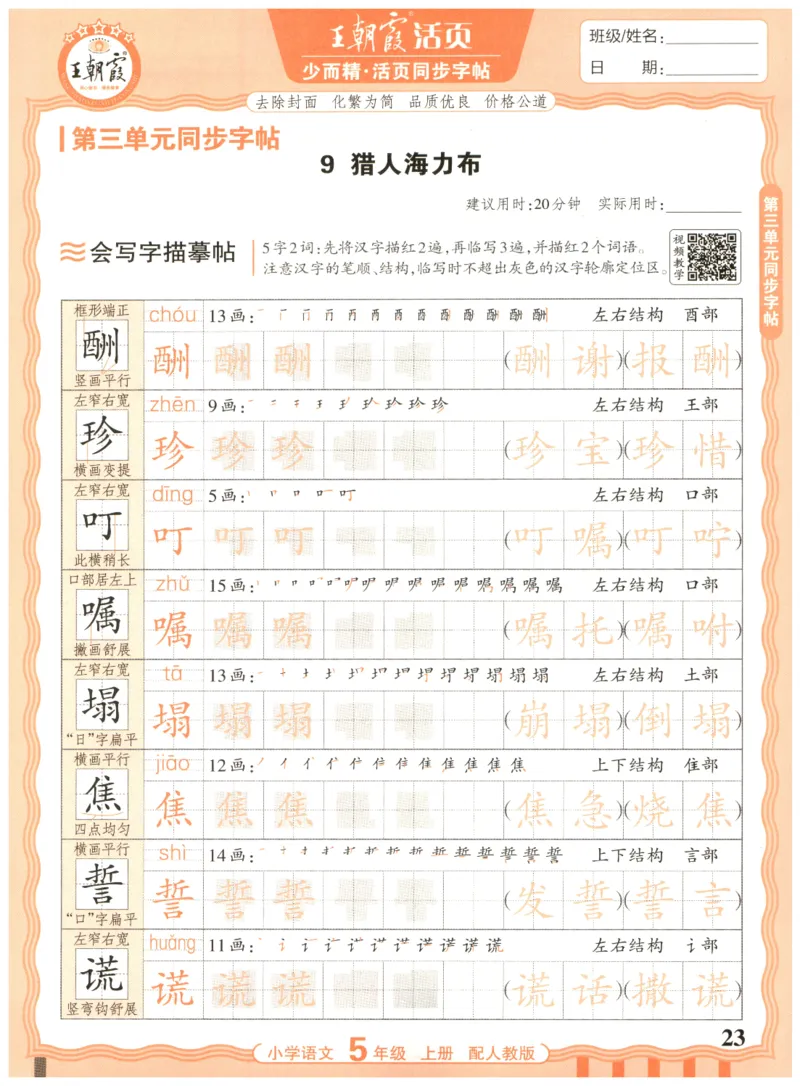 王朝霞
王朝霞活页
少而精·活页同步字帖
班级/姓名:
日 期:
去除封面 化繁为简 品质优良 价格公道
第三单元同步字帖
9 猎人海力布
建议用时:20分钟 实际用时:
会写字描摹帖
5字2词:先将汉字描红2遍,再临写3遍,并描红2个词语。
注意汉字的笔顺、结构,临写时不超出灰色的汉字轮廓定位区。
视频教学
第三单元同步字帖
框形端正
chóu 13画: 左右结构 酉部
酬
竖画平行
酬 酬 酬 (酬谢)(报酬)
左窄右宽
zhēn 9画: 左右结构 王部
珍
横画变提
珍 珍 珍 (珍宝)(珍惜)
左窄右宽
dīng 5画: 左右结构 口部
叮
此横稍长
叮 叮 叮 (叮嘱)(叮咛)
口部居左上
zhǔ 15画: 左右结构 口部
嘱
撇画舒展
嘱 嘱 嘱 (嘱托)(嘱咐)
左窄右宽
tā 13画: 左右结构 土部
塌
“日”字扁平
塌 塌 塌 (崩塌)(倒塌)
横画平行
jiāo 12画: 上下结构 隹部
焦
四点均匀
焦 焦 焦 (焦急)(烧焦)
横画平行
shì 14画: 上下结构 言部
誓
“口”字扁平
誓 誓 誓 (发誓)(誓言)
左窄右宽
huǎng 11画: 左右结构 讠部
谎
竖弯钩舒展
谎 谎 谎 (谎话)(撒谎)
23
小学语文 5年级 上册 配人教版